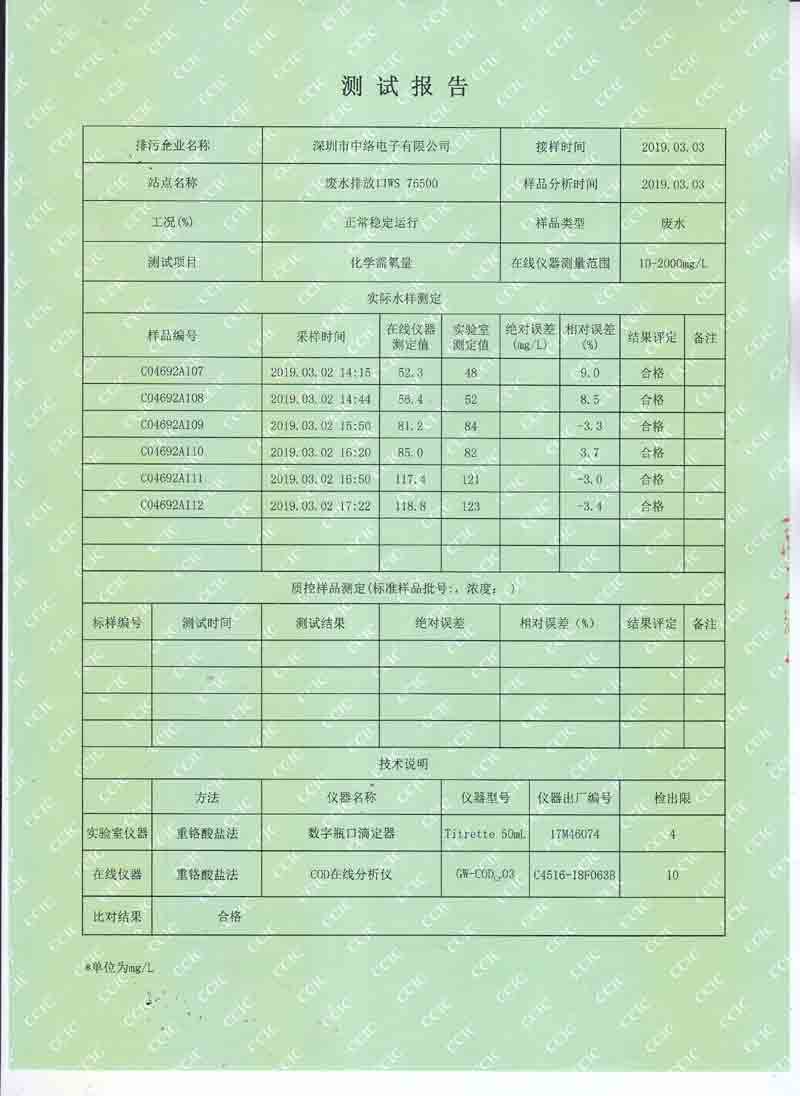 测试报告
排污企业名称 深圳市中络电子有限公司 接样时间 2019.03.03
站点名称 废水排放口WS 76500 样品分析时间 2019.03.03
工况(%) 正常稳定运行 样品类型 废水
测试项目 化学需氧量 在线仪器测量范围 10-2000mg/L
实际水样测定
样品编号 采样时间 在线仪器测定值 实验室测定值 绝对误差(mg/L) 相对误差(%) 结果评定 备注
C04692A107 2019.03.02 14:15 52.3 48 9.0 合格
C04692A108 2019.03.02 14:44 56.4 52 8.5 合格
C04692A109 2019.03.02 15:50 81.2 84 -3.3 合格
C04692A110 2019.03.02 16:20 85.0 82 3.7 合格
C04692A111 2019.03.02 16:50 117.4 121 -3.0 合格
C04692A112 2019.03.02 17:22 118.8 123 -3.4 合格
质控样品测定(标准样品批号:,浓度: )
标样编号 测试时间 测试结果 绝对误差 相对误差(%) 结果评定 备注
技术说明
方法 仪器名称 仪器型号 仪器出厂编号 检出限
实验室仪器 重铬酸盐法 数字瓶口滴定器 Titrette 50mL 17M46074 4
在线仪器 重铬酸盐法 COD在线分析仪 C4516-18F063B 10
比对结果 合格
*单位为mg/L
CCIC